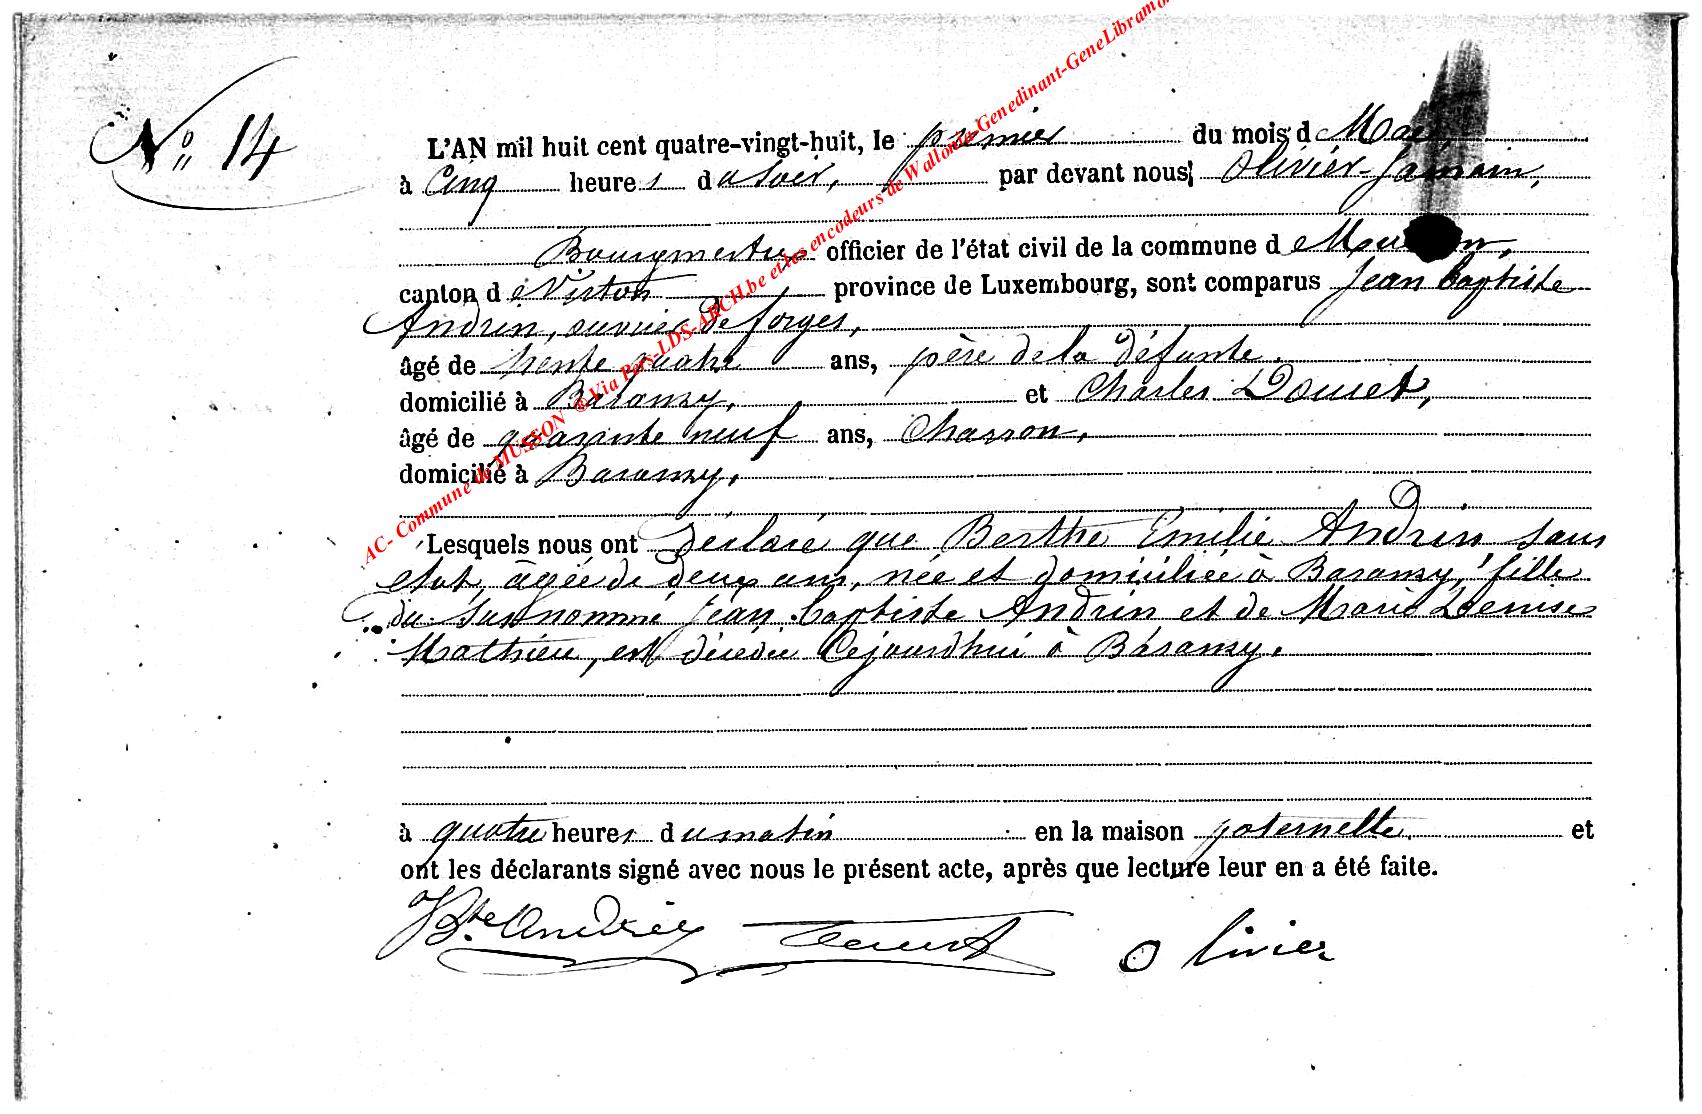 N° 14
L'AN mil huit cent quatre-vingt-huit, le premier du mois d
à cinq heures du soir, par devant nous, Olivier-Jamain,
Bourgmestre officier de l'état civil de la commune de Musson,
canton de Virton province de Luxembourg, sont comparus Jean Baptiste
Andrin, ouvrier de forges,
âgé de trente quatre ans, père de la défunte.
domicilié à Baranzy, et Charles Doucet,
âgé de quarante neuf ans, charron,
domicilié à Baranzy,
Lesquels nous ont déclaré que Berthe Emilie Andrin sans
état, âgée de deux ans, née et domiciliée à Baranzy, fille
du susnommé Jean Baptiste Andrin et de Marie Denise
Mathieu, est décédée cejourd'hui à Baranzy.
à quatre heures du matin en la maison paternelle. et
ont les déclarants signé avec nous le présent acte, après que lecture leur en a été faite.
JBte Andrin Doucet Olivier
AC- Commune de MUSSON ©Via Pers-LDS-ARCH.be et les encodeurs de Wallonie-Genedinant-GeneLibramo